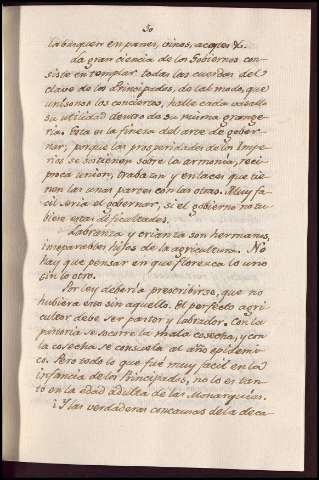 50
la busquen en panes, vinos, aceytes &.
La gran ciencia de los Gobiernos con-
siste en templar todas las cuerdas del
clave de los Principados, de tal modo, que
unisonos los conciertos, halle cada vasallo
su utilidad dentro de su misma grange-
ria. Esta es la fineza del arte de gober-
nar; porque las prosperidades de los Impe-
rios se sostienen sobre la armonia, reci-
proca union, trabazon y enlaces que tie-
nen las unas partes con las otras. Muy fa-
cil seria el gobernar, si el gobierno no tu-
biese estas dificultades.
Labranza y crianza son hermanas,
inseparables hijas de la agricultura. No
hay que pensar en que florezca lo uno
sin lo otro.
Por ley deberia prescribirse, que no
hubiera esto sin aquello. El perfecto agri-
cultor debe ser pastor y labrador. Con la
pasteria se socorre la mala cosecha, y con
la cosecha se consuela al año epidemi-
co. Pero todo lo que fué muy facil en la
infancia de los Principados, no lo es tan-
to en la edad adulta de las Monarquias.
¿Y las verdaderas concausas de la deca-